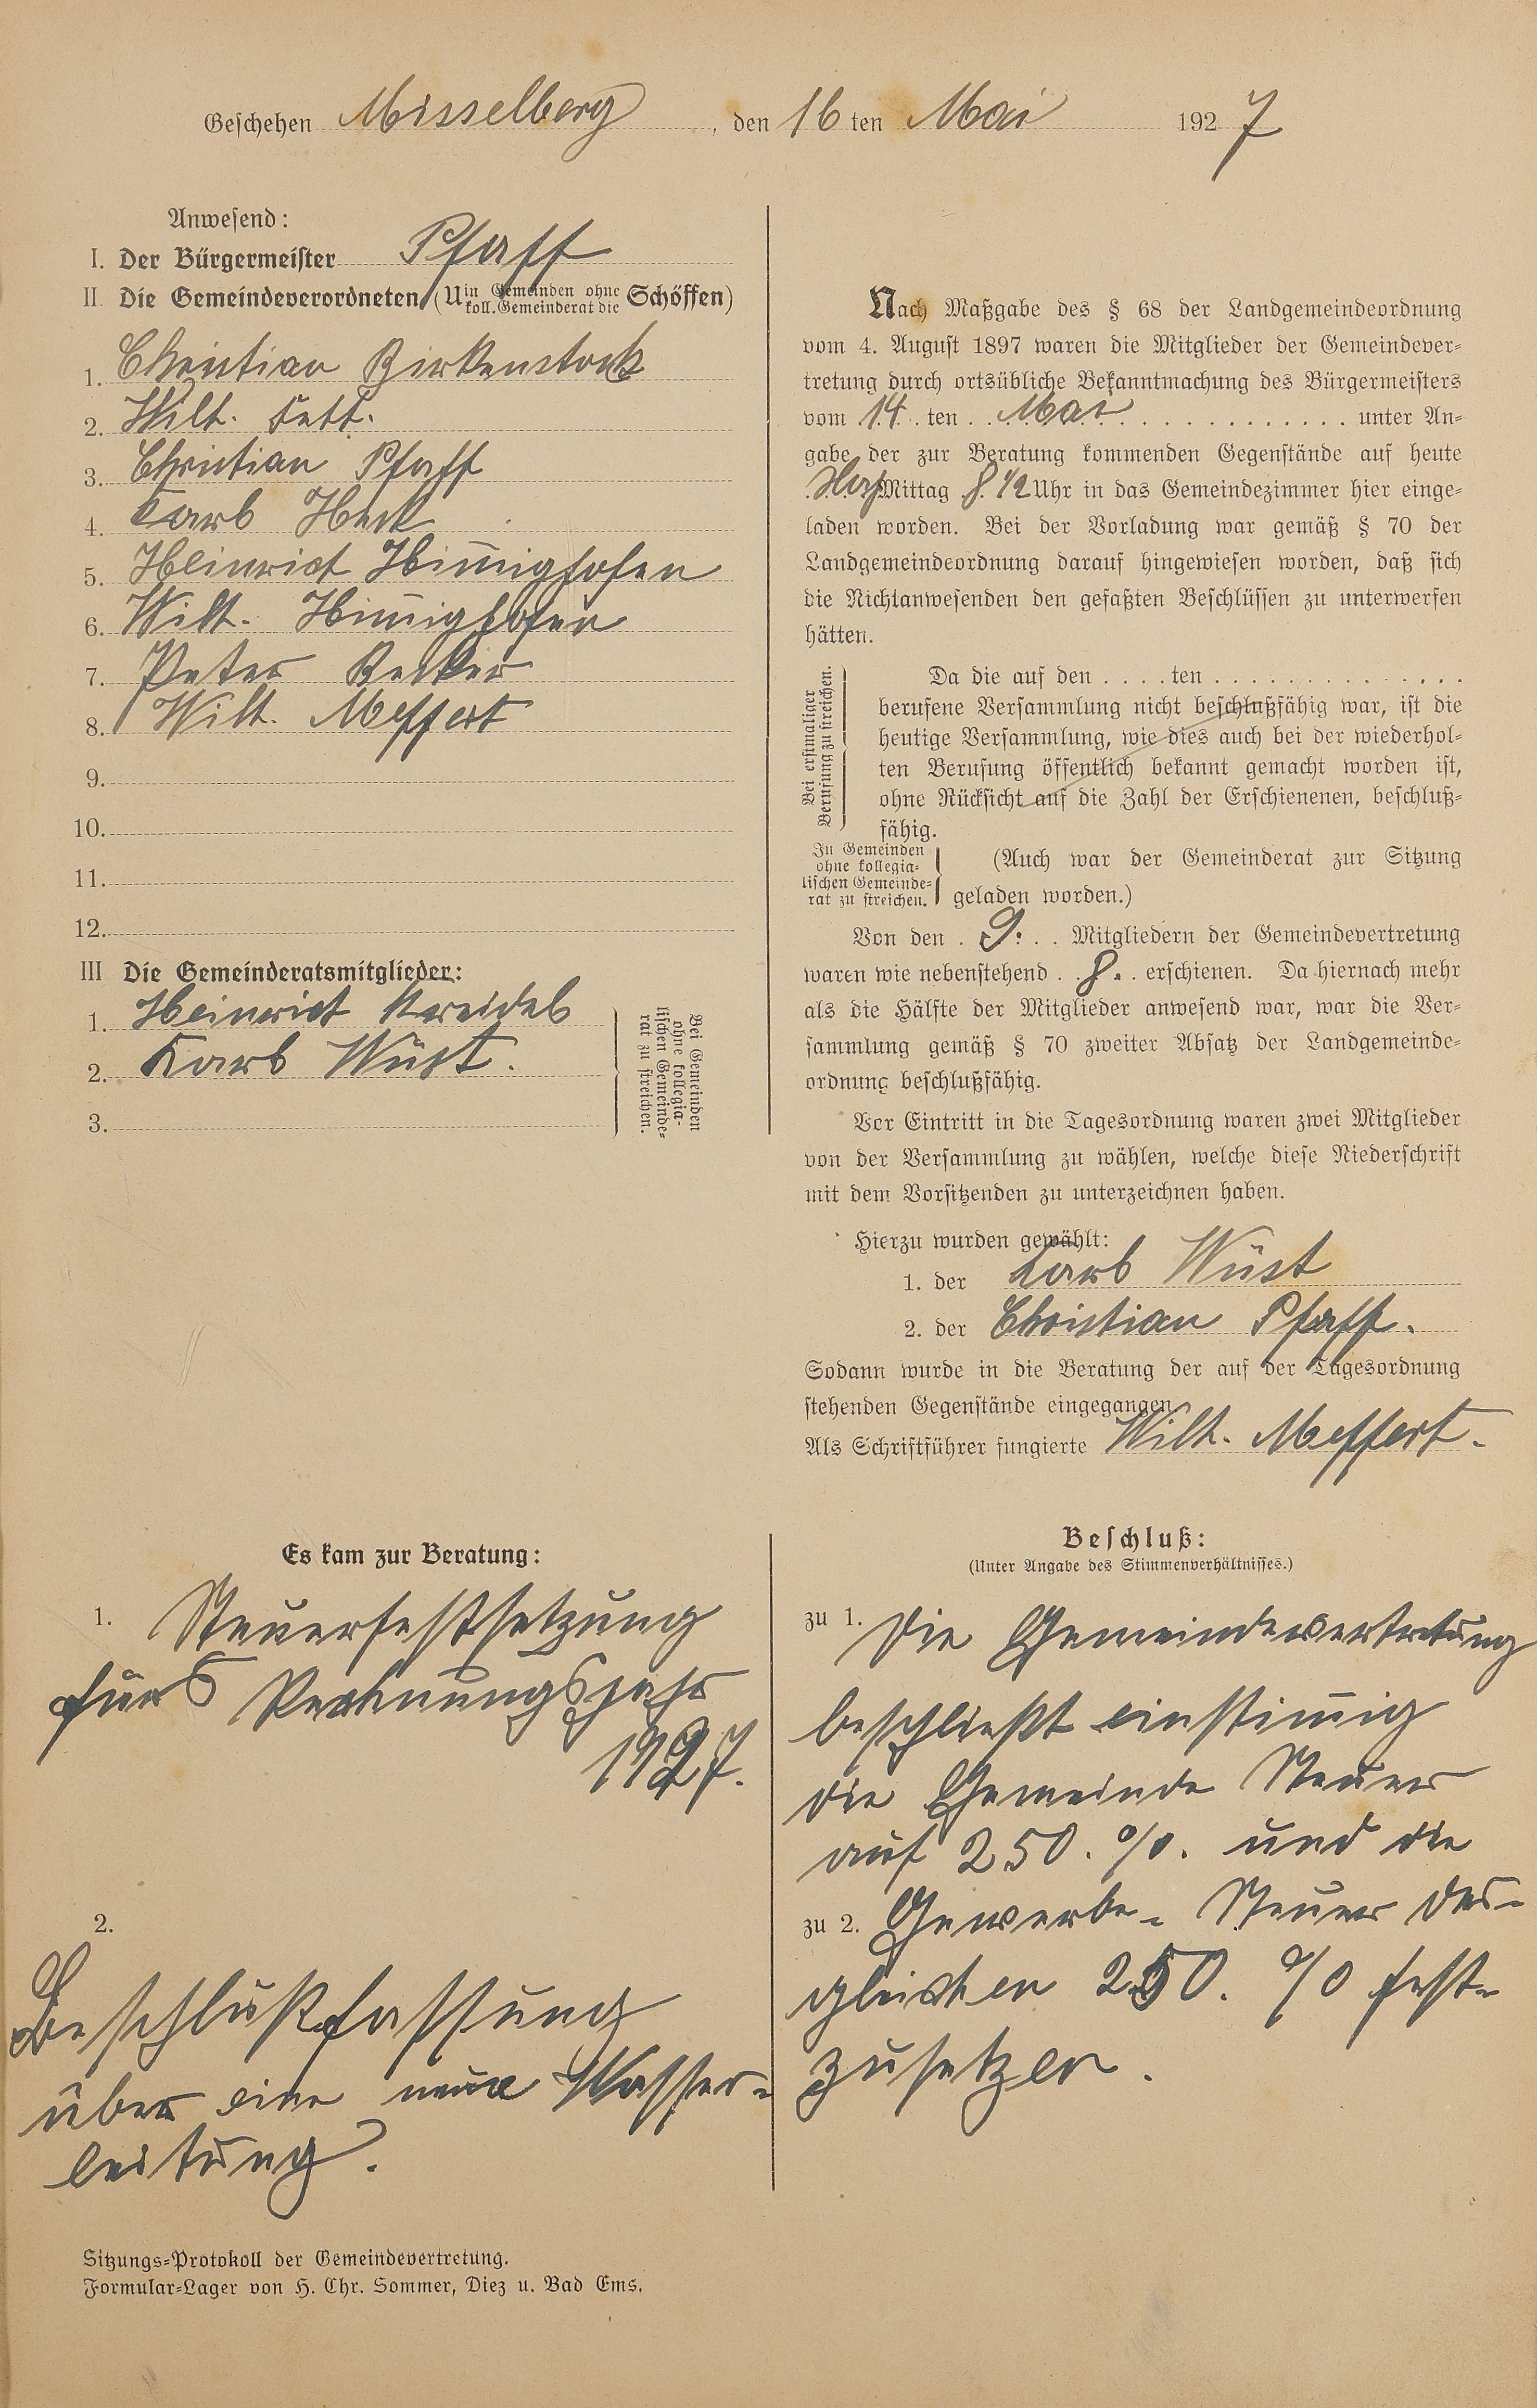 Geschehen Misselberg, den 16 ten Mai 1927
Anwesend:
I. Der Bürgermeister Pfaff
II. Die Gemeindeverordneten (U in Gemeinden ohne koll. Gemeinderat die Schöffen)
1. Christian Birkenstock
2. Wilh.
3. Christian Pfaff
4. Karl Heck
5. Heinrich Himmighofen
6. Wilh. Himmighofen
7. Peter Becker
8. Wilh. Meffert
9.
10.
11.
12.
III Die Gemeinderatsmitglieder:
1. Heinrich Kreidel
2. Karl Wüst.
3.
Bei Gemeinden
ohne kollegia-
lischen Gemeinde-
rat zu streichen.
Nach Maßgabe des § 68 der Landgemeindeordnung
vom 4. August 1897 waren die Mitglieder der Gemeindever-
tretung durch ortsübliche Bekanntmachung des Bürgermeisters
vom 14. ten Mai unter An-
gabe der zur Beratung kommenden Gegenstände auf heute
Mittag 8 1/2 Uhr in das Gemeindezimmer hier einge-
laden worden. Bei der Vorladung war gemäß § 70 der
Landgemeindeordnung darauf hingewiesen worden, daß sich
die Nichtanwesenden den gefaßten Beschlüssen zu unterwerfen
hätten.
Bei erstmaliger
Berufung zu streichen.
Da die auf den . . . . ten . . . . . . . . . . . . . .
berufene Versammlung nicht beschlußfähig war, ist die
heutige Versammlung, wie dies auch bei der wiederhol-
ten Berufung öffentlich bekannt gemacht worden ist,
ohne Rücksicht auf die Zahl der Erschienenen, beschluß-
fähig.
In Gemeinden
ohne kollegia-
lischen Gemeinde-
rat zu streichen.
(Auch war der Gemeinderat zur Sitzung
geladen worden.)
Von den 9. Mitgliedern der Gemeindevertretung
waren wie nebenstehend 8. erschienen. Da hiernach mehr
als die Hälfte der Mitglieder anwesend war, war die Ver-
sammlung gemäß § 70 zweiter Absatz der Landgemeinde-
ordnung beschlußfähig.
Vor Eintritt in die Tagesordnung waren zwei Mitglieder
von der Versammlung zu wählen, welche diese Niederschrift
mit dem Vorsitzenden zu unterzeichnen haben.
Hierzu wurden gewählt:
1. der Karl Wüst
2. der Christian Pfaff.
Sodann wurde in die Beratung der auf der Tagesordnung
stehenden Gegenstände eingegangen.
Als Schriftführer fungierte Wilh. Meffert.
Es kam zur Beratung:
1. Steuerfestsetzung
fürs Rechnungsjahr
1927.
2.
Beschlußfassung
über eine neue Wasser-
leitung.
Beschluß:
(Unter Angabe des Stimmenverhältnisses.)
zu 1. Die Gemeindevertretung
beschließt einstimmig
die Gemeinde Steuer
auf 250. %. und die
zu 2. Gewerbe- Steuer des-
gleichen 250. % fest-
zusetzen.
Sitzungs-Protokoll der Gemeindevertretung.
Formular-Lager von H. Chr. Sommer, Diez u. Bad Ems.